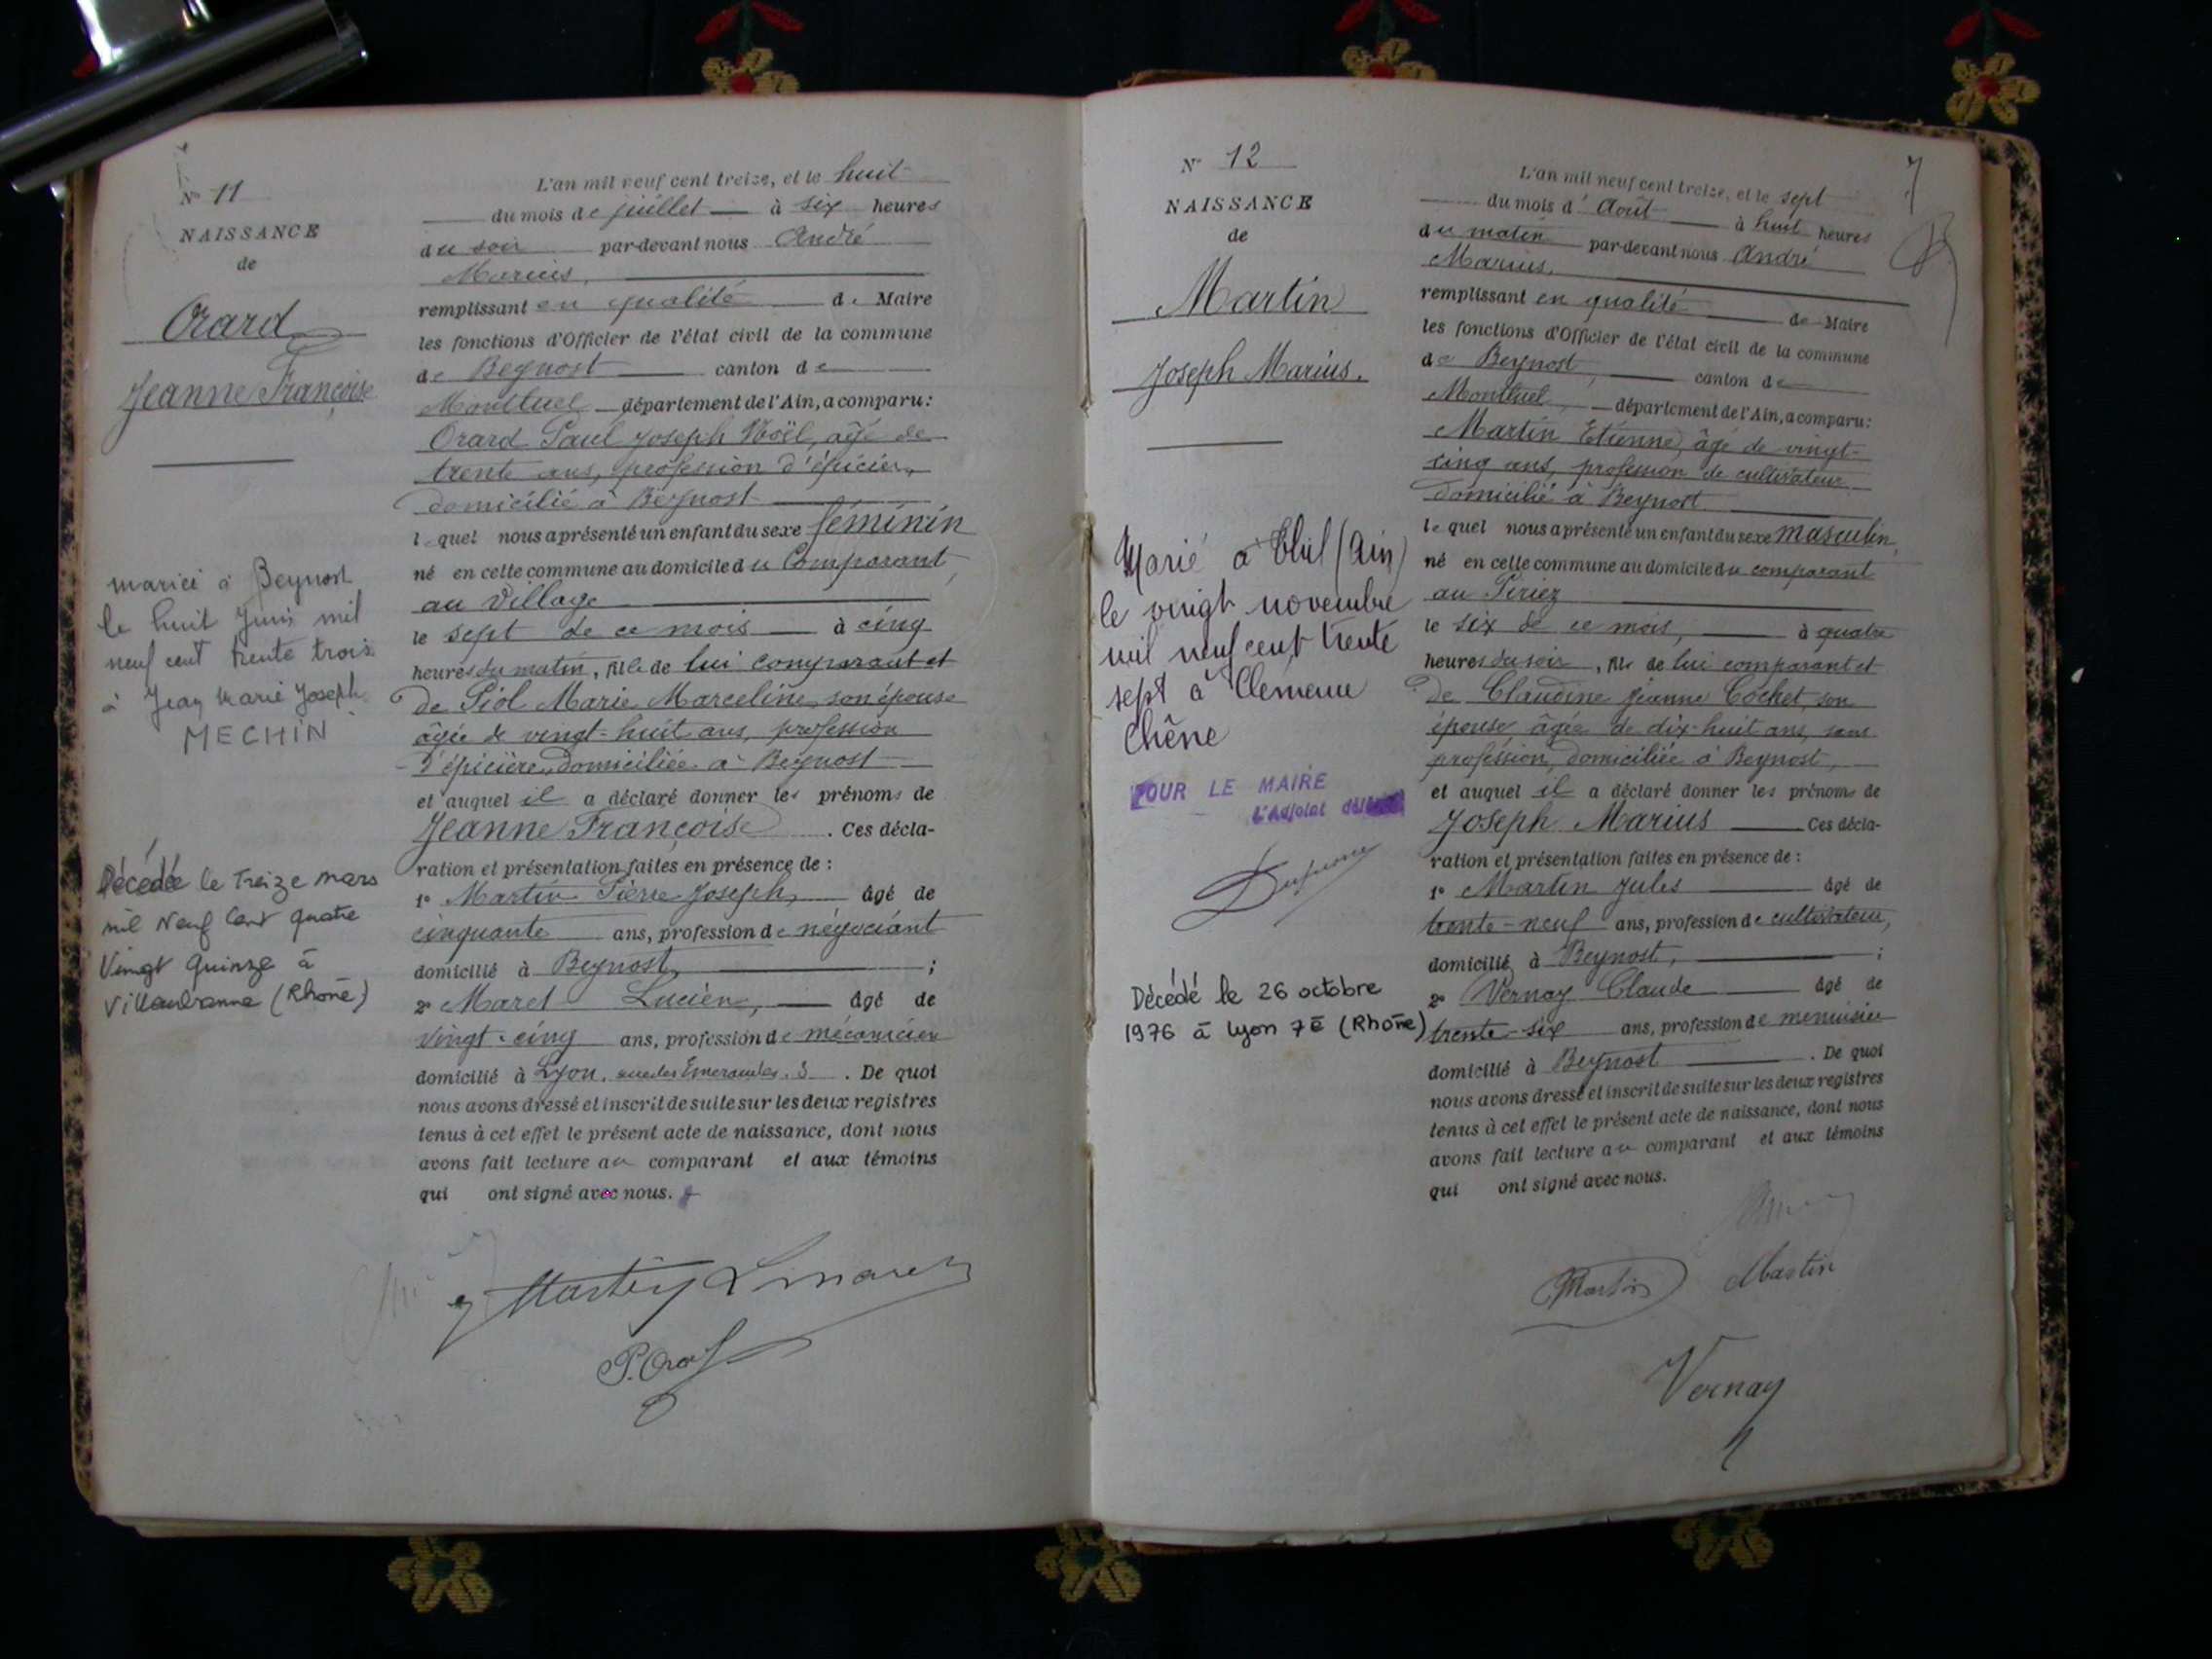 N° 11
NAISSANCE
de
Orard
Jeanne Françoise
mariée à Beynost
le huit Juin mil
neuf cent trente trois
à Jean Marie Joseph
MECHIN
Décédée le Treize mars
mil Neuf Cent quatre
Vingt Quinze à
Villeurbanne (Rhône)
L'an mil neuf cent treize, et le huit
du mois de juillet à six heures
du soir par-devant nous André
Marius,
remplissant en qualité de Maire
les fonctions d'Officier de l'état civil de la commune
de Beynost canton de
Montluel département de l'Ain, a comparu:
Orard Paul Joseph Noël, âgé de
trente ans, profession d'épicier,
domicilié à Beynost
lequel nous a présenté un enfant du sexe féminin
né en cette commune au domicile du Comparant,
au Village
le sept de ce mois à cinq
heures du matin, fille de lui comparant et
de Piol Marie Marceline, son épouse
âgée de vingt-huit ans, profession
d'épicière, domiciliée à Beynost
et auquel il a déclaré donner les prénoms de
Jeanne Françoise. Ces décla-
ration et présentation faites en présence de :
1° Martin Pierre Joseph, âgé de
cinquante ans, profession de négociant
domicilié à Beynost, ;
2° Maret Lucien, âgé de
vingt-cinq ans, profession de mécanicien
domicilié à Lyon, rue des Emeraudes, 3. De quoi
nous avons dressé et inscrit de suite sur les deux registres
tenus à cet effet le présent acte de naissance, dont nous
avons fait lecture au comparant et aux témoins
qui ont signé avec nous.
J Martin L maret
P. Orard
7
N° 12
NAISSANCE
de
Martin
Joseph Marius.
Marié à Thil (Ain)
le vingt novembre
mil neuf cent trente
sept à Clemence
Chêne
POUR LE MAIRE
L'Adjoint délégué
Décédé le 26 octobre
1976 à Lyon 7è (Rhône)
L'an mil neuf cent treize, et le sept
du mois d'Août à huit heures
du matin par-devant nous André
Marius,
remplissant en qualité de Maire
les fonctions d'Officier de l'état civil de la commune
de Beynost, canton de
Montluel, département de l'Ain, a comparu:
Martin Etienne, âgé de vingt-
cinq ans, profession de cultivateur
domicilié à Beynost
lequel nous a présenté un enfant du sexe masculin,
né en cette commune au domicile du comparant
au Périez
le six de ce mois, à quatre
heures du soir, fils de lui comparant et
de Claudine Jeanne Cochet, son
épouse, âgée de dix-huit ans, sans
profession, domiciliée à Beynost,
et auquel il a déclaré donner les prénoms de
Joseph Marius Ces décla-
ration et présentation faites en présence de :
1° Martin Jules âgé de
trente-neuf ans, profession de cultivateur,
domicilié à Beynost, ;
2° Vernay Claude âgé de
trente-six ans, profession de menuisier
domicilié à Beynost. De quoi
nous avons dressé et inscrit de suite sur les deux registres
tenus à cet effet le présent acte de naissance, dont nous
avons fait lecture au comparant et aux témoins
qui ont signé avec nous.
Martin Martin
Vernay